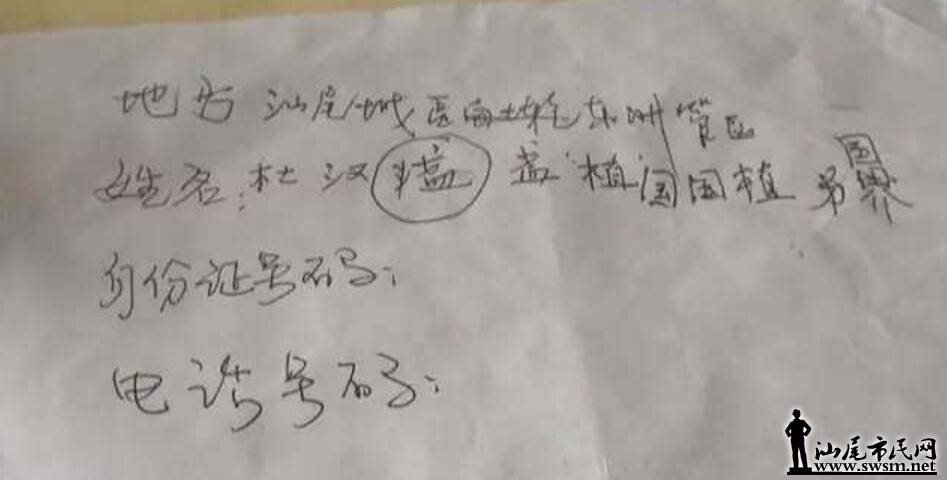 地方 汕尾城区东洲管区
姓名:杜汉 孟 植国国植 界 国
身份证号码:
电话号码:
汕尾市民网
www.swsm.net